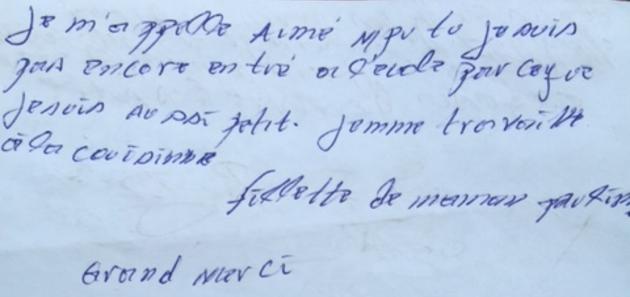 Je m'appelle Aimé Mputu je suis
pas encore entré a l'école parceque
Je suis aussi petit. Jemme travaille
à la couisinne
fillette de maman
Grand Merci